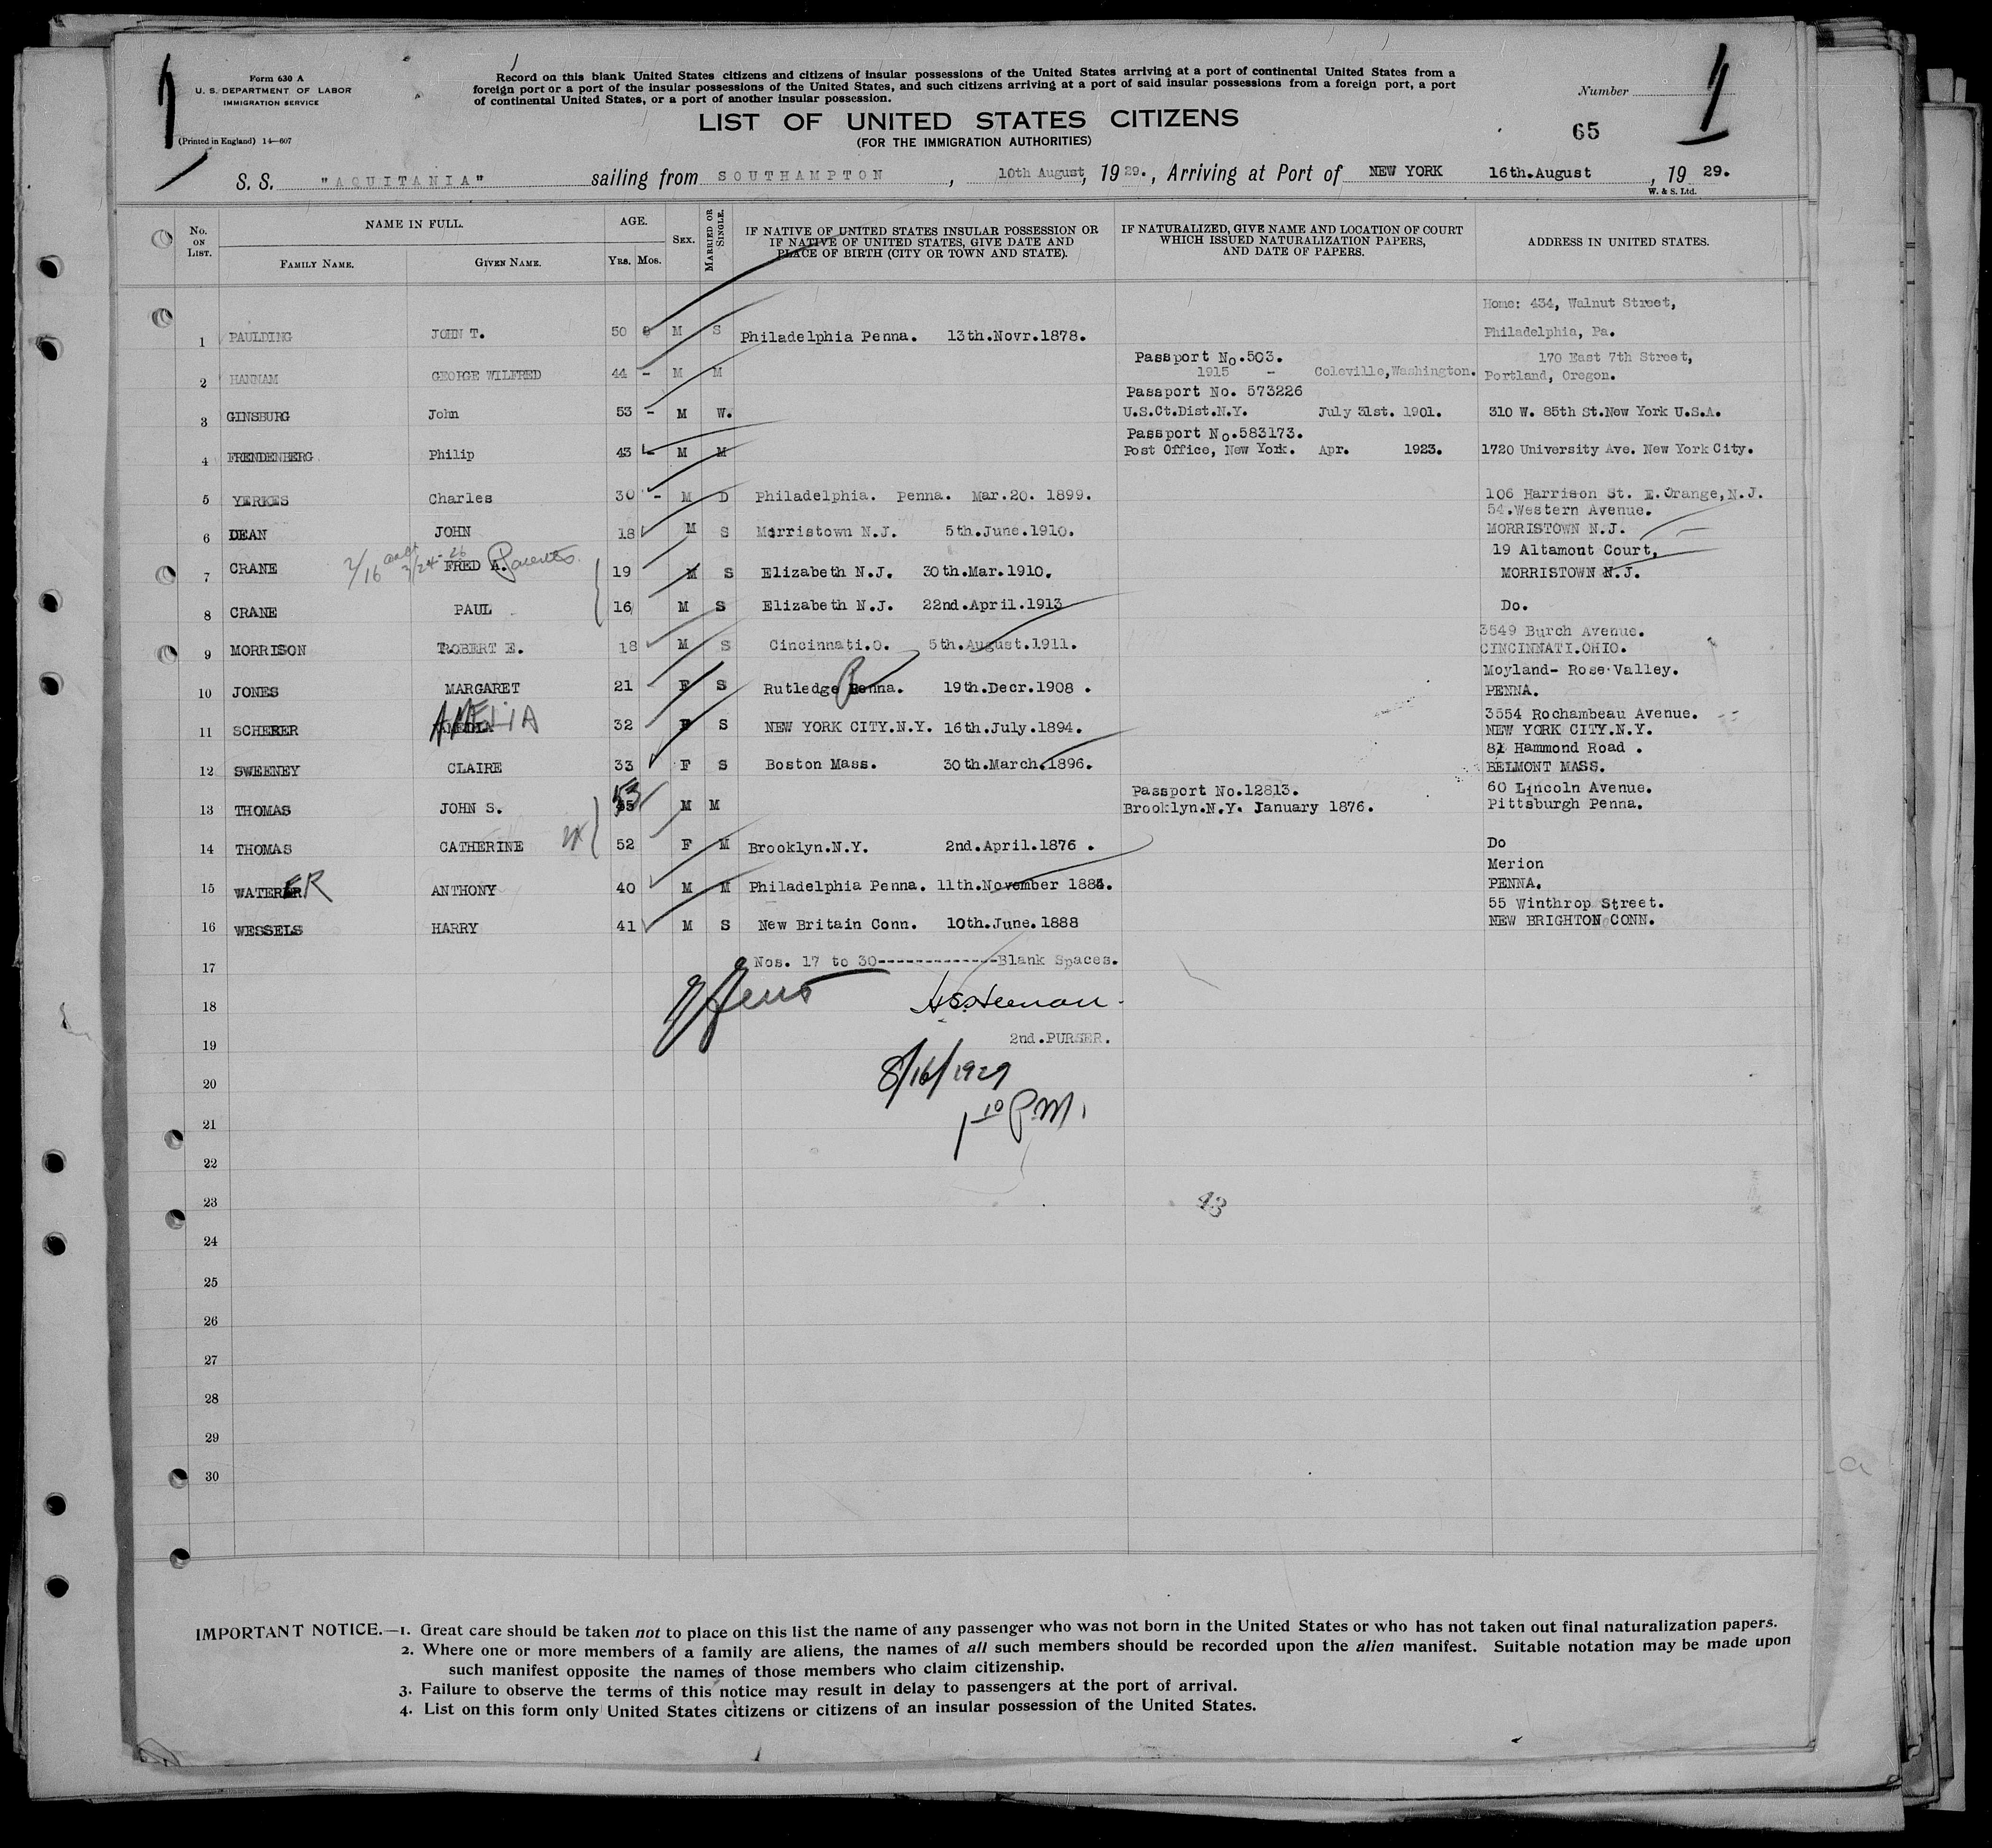 Form 630 A
U. S. DEPARTMENT OF LABOR
IMMIGRATION SERVICE
(Printed in England) 14—607
Record on this blank United States citizens and citizens of insular possessions of the United States arriving at a port of continental United States from a
foreign port or a port of the insular possessions of the United States, and such citizens arriving at a port of said insular possessions from a foreign port, a port
of continental United States, or a port of another insular possession.
Number
LIST OF UNITED STATES CITIZENS
(FOR THE IMMIGRATION AUTHORITIES)
65
S. S. "AQUITANIA" sailing from SOUTHAMPTON, 10th August, 19 29., Arriving at Port of NEW YORK 16th.August, 19 29.
W. & S. Ltd.
No. ON LIST. NAME IN FULL. FAMILY NAME. GIVEN NAME. AGE. YRS. MOS. SEX. MARRIED OR SINGLE. IF NATIVE OF UNITED STATES INSULAR POSSESSION OR IF NATIVE OF UNITED STATES, GIVE DATE AND PLACE OF BIRTH (CITY OR TOWN AND STATE). IF NATURALIZED, GIVE NAME AND LOCATION OF COURT WHICH ISSUED NATURALIZATION PAPERS, AND DATE OF PAPERS. ADDRESS IN UNITED STATES.
Home: 434, Walnut Street,
1 PAULDING JOHN T. 50 M S Philadelphia Penna. 13th.Novr.1878. Philadelphia, Pa.
Passport No.503. 170 East 7th Street,
2 HANNAM GEORGE WILFRED 44 - M M 1915 - Coleville,Washington. Portland, Oregon.
Passport No. 573226
3 GINSBURG John 53 - M W. U.S.Ct.Dist.N.Y. July 31st. 1901. 310 W. 85th St.New York U.S.A.
Passport No.583173.
4 FRENDENBERG Philip 43 - M M Post Office, New York. Apr. 1923. 1720 University Ave. New York City.
5 YERKES Charles 30 - M D Philadelphia. Penna. Mar.20. 1899. 106 Harrison St. E.Orange,N.J.
54.Western Avenue.
6 DEAN JOHN 18 M S Morristown N.J. 5th.June.1910. MORRISTOWN N.J.
19 Altamont Court,
7 CRANE FRED A. 19 M S Elizabeth N.J. 30th.Mar.1910. MORRISTOWN N.J.
8 CRANE PAUL 16 M S Elizabeth N.J. 22nd.April.1913 Do.
3549 Burch Avenue.
9 MORRISON ROBERT E. 18 M S Cincinnati.O. 5th.August.1911. CINCINNATI.OHIO.
Moyland- Rose.Valley.
10 JONES MARGARET 21 F S Rutledge Penna. 19th.Decr.1908 . PENNA.
3554 Rochambeau Avenue.
11 SCHERER AMELIA 32 F S NEW YORK CITY.N.Y. 16th.July.1894. NEW YORK CITY.N.Y.
81 Hammond Road .
12 SWEENEY CLAIRE 33 F S Boston Mass. 30th.March.1896. BELMONT MASS.
Passport No.12813. 60 Lincoln Avenue.
13 THOMAS JOHN S. 53 M M Brooklyn.N.Y. January 1876. Pittsburgh Penna.
14 THOMAS CATHERINE 52 F M Brooklyn.N.Y. 2nd.April.1876 . Do
Merion
15 WATERER ANTHONY 40 M M Philadelphia Penna. 11th.November 1888. PENNA.
55 Winthrop Street.
16 WESSELS HARRY 41 M S New Britain Conn. 10th.June.1888 NEW BRIGHTON CONN.
17 Nos. 17 to 30-------------Blank Spaces.
18
19 2nd.PURSER.
20 8/16/1929
21 1 10 P.M.
22
23 43
24
25
26
27
28
29
30
IMPORTANT NOTICE.—1. Great care should be taken not to place on this list the name of any passenger who was not born in the United States or who has not taken out final naturalization papers.
2. Where one or more members of a family are aliens, the names of all such members should be recorded upon the alien manifest. Suitable notation may be made upon
such manifest opposite the names of those members who claim citizenship.
3. Failure to observe the terms of this notice may result in delay to passengers at the port of arrival.
4. List on this form only United States citizens or citizens of an insular possession of the United States.